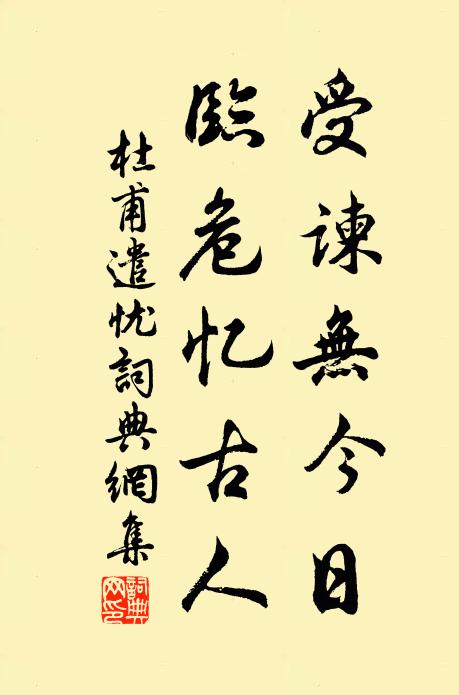 受諫無今日
臨危忆古人
杜甫遣忧詞典網集
詞典网印